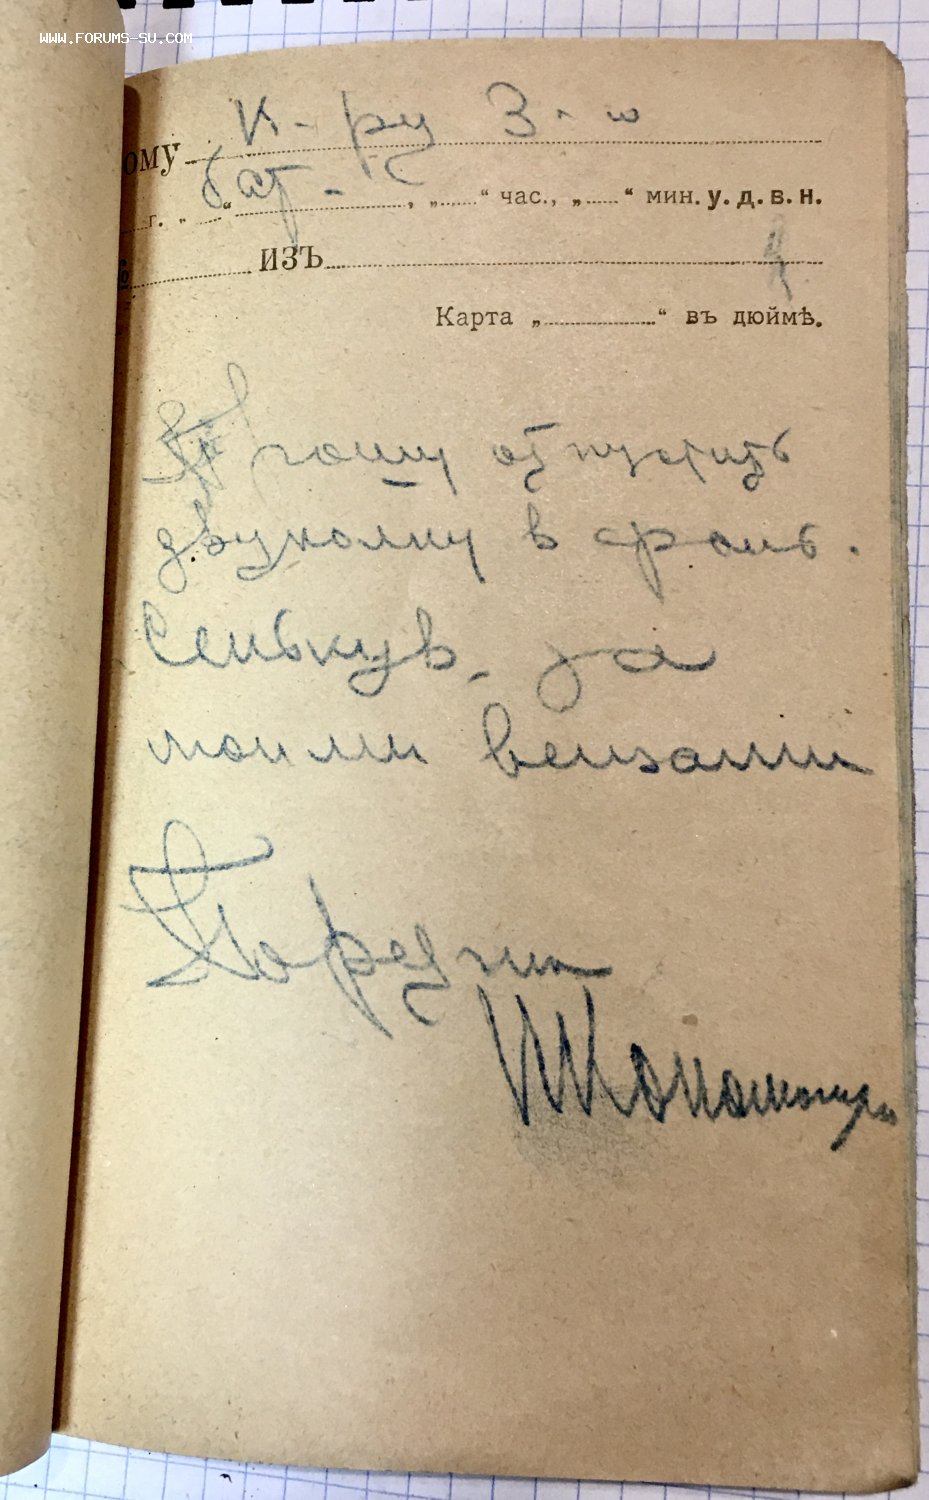 WWW.FORUMS-SU.COM
ому К-ру 3-го
бат-
г. „ “ , „ “ час., „ “ мин. у. д. в. н.
№ ИЗЪ
Карта „ “ въ дюймѣ.
Прошу отпустить
двуколку в фоль.
Сенькув, за
моими вещами
Поручик